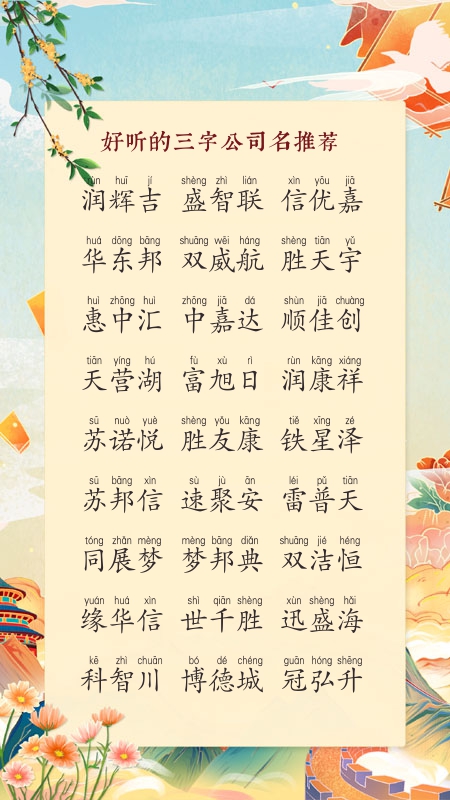 好听的三字公司名推荐
rùn huī jí shèng zhì lián xìn yōu jiā
润辉吉 盛智联 信优嘉
huá dōng bāng shuāng wēi háng shèng tiān yǔ
华东邦 双威航 胜天宇
huì zhōng huì zhōng jiā dá shùn jiā chuàng
惠中汇 中嘉达 顺佳创
tiān yíng hú fù xù rì rùn kāng xiáng
天营湖 富旭日 润康祥
sū nuò yuè shèng yǒu kāng tiě xīng zé
苏诺悦 胜友康 铁星泽
sū bāng xìn sù jù ān léi pǔ tiān
苏邦信 速聚安 雷普天
tóng zhǎn mèng mèng bāng diǎn shuāng jié héng
同展梦 梦邦典 双洁恒
yuán huá xìn shì qiān shèng xùn shèng hǎi
缘华信 世千胜 迅盛海
kē zhì chuān bó dé chéng guān hóng shēng
科智川 博德城 冠弘升